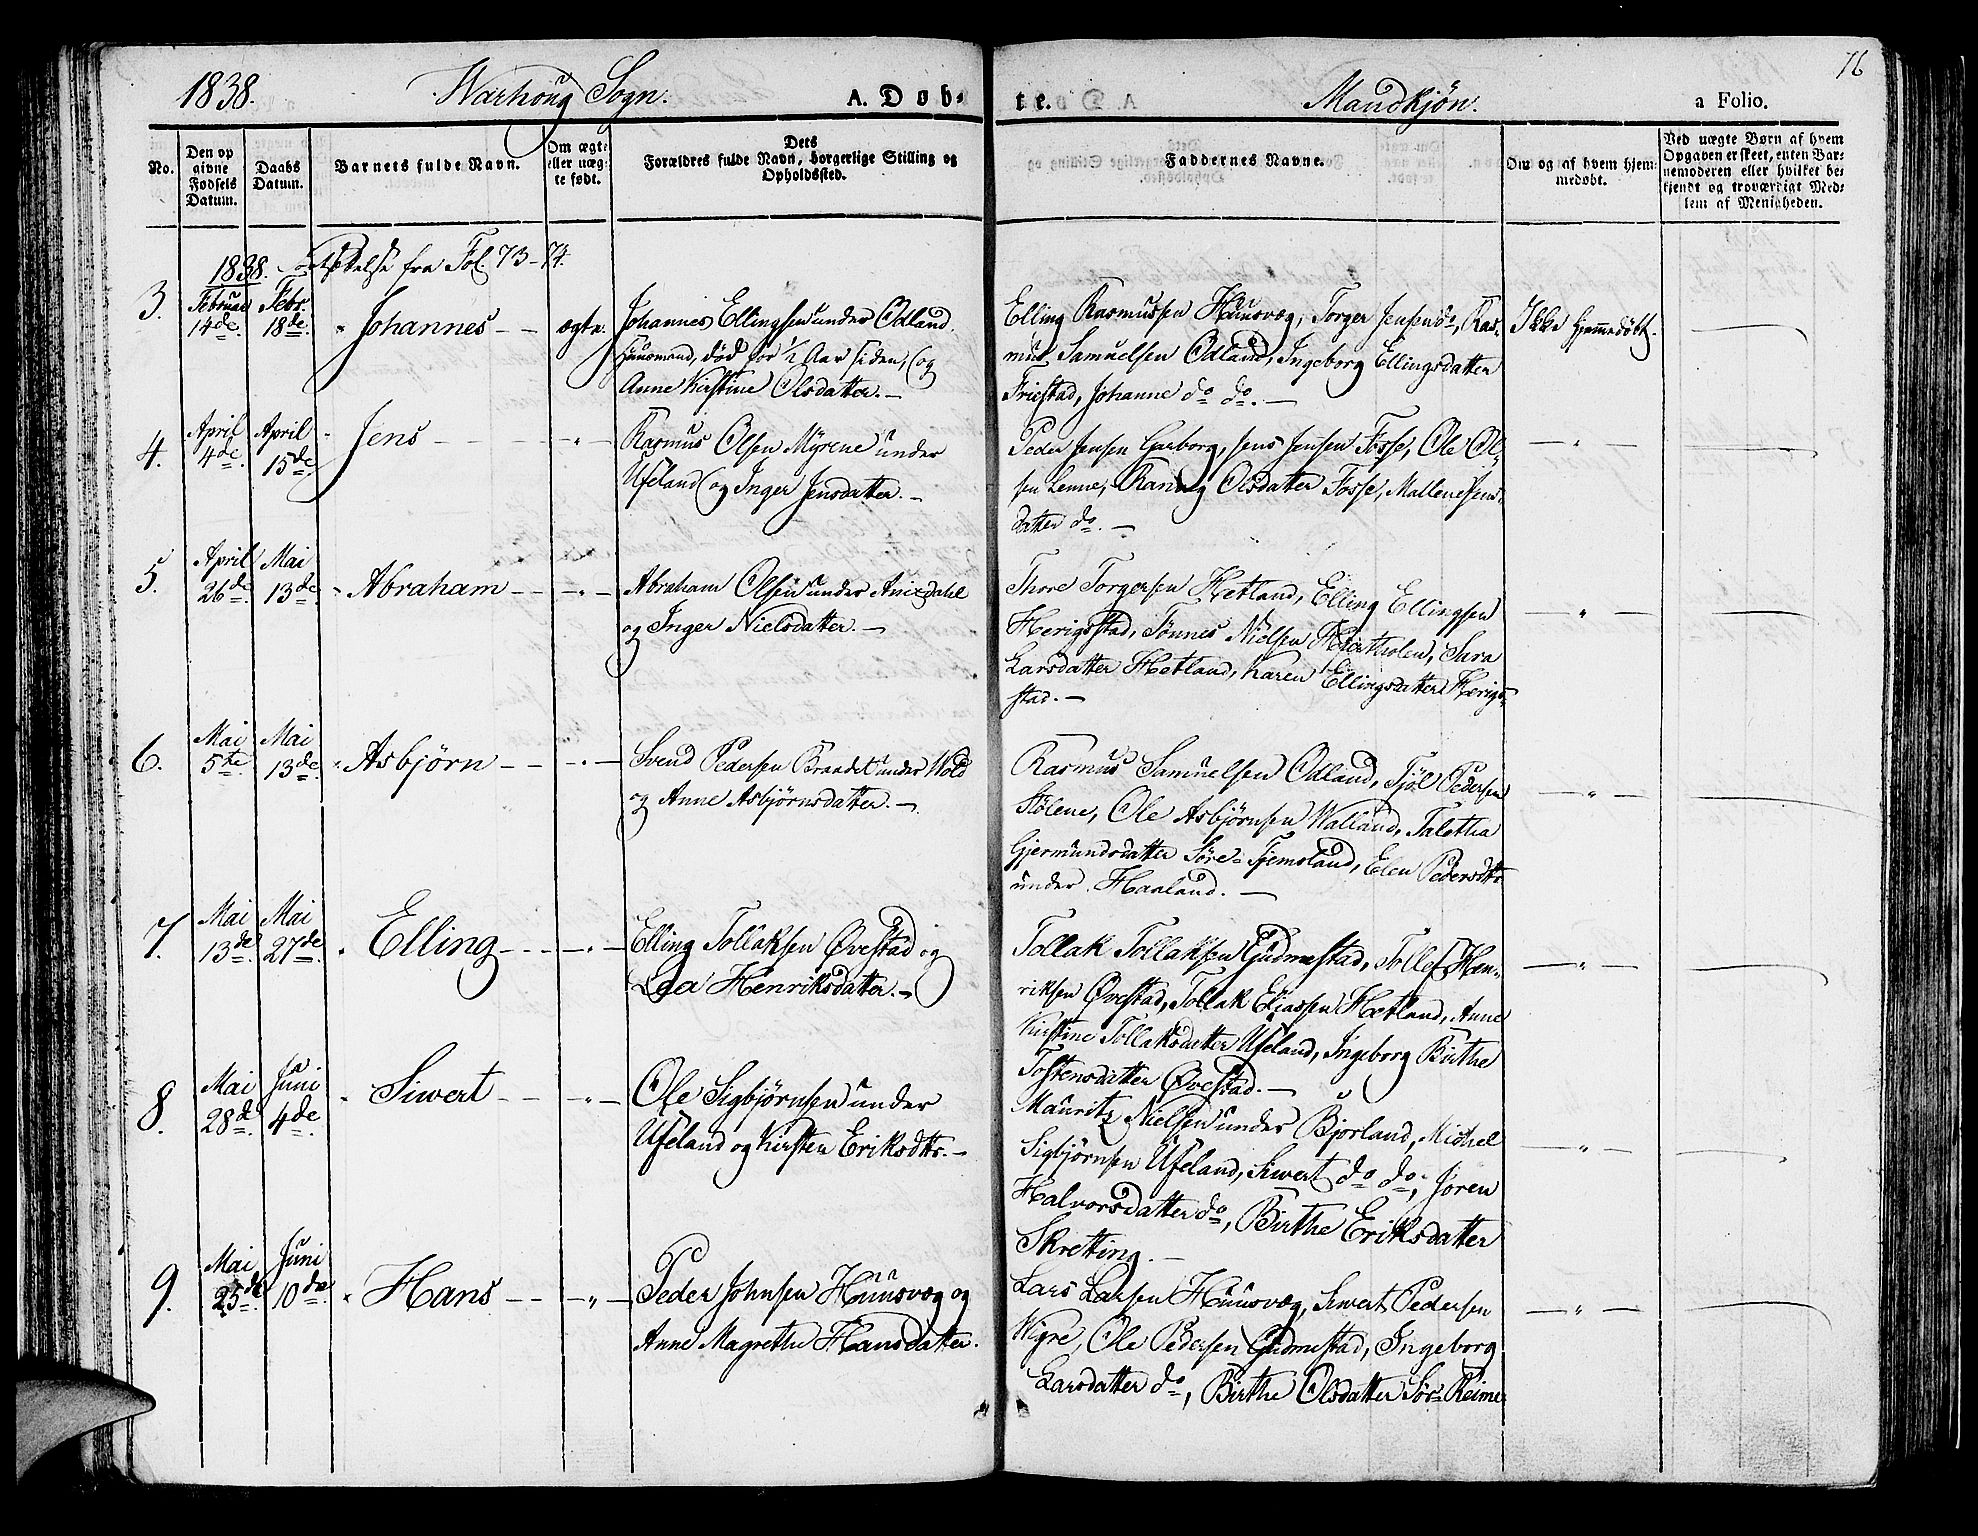 76
1838. Warhoug Sogn. A. Døb-
te. Mandkjøn. a Folio.
No.
Den op
givne
Fødsels
Datum.
Daabs
Datum.
Barnets fulde Navn.
Om ægte
eller uæg-
te født.
Dets
Forældres fulde Navn, borgerlige Stilling og
Opholdssted.
Faddernes Navne.
Om og af hvem hjem-
medøbt.
Ved uægte Børn af hvem
Opgaven er skeet, enten Bar-
nemoderen eller hvilket be-
kjendt og troværdigt Med-
lem af Menigheden.
1838. fra Fol. 73-74.
3. Februar 14de. Febr. 18de. " Johannes - - ægte.
Johannes Ellingsen under Odland,
Huusmand, død for 1/2 Aar siden, og
Anne Kirstine Olsdatter. -
Elling Rasmussen Huusvæg, Torger Jensen do, Ras-
mus Samuelsen Odland, Ingeborg Ellingsdatter
Friestad, Johanne do do. -
Ikke hjemmedøbt.
4. April 4de. April 15de. " Jens - - - - " -
Rasmus Olsen Myrene under
Ueland og Inger Jensdatter. -
Peder Jensen Garborg, Jens Jensen Fosse, Ole Ol-
sen Lenne, Rannug Olsdatter Fosse, Mallene Jens-
datter do. -
- " -
5. April 26de. Mai 13de. " Abraham - - - " -
Abraham Olsen under Anixdahl
og Inger Nielsdatter. -
Thore Torgersen Hetland, Elling Ellingsen
Herigstad, Tønnes Nielsen Hiertholen, Sara
Larsdatter Hetland, Karen Ellingsdatter Herig-
stad. -
- " -
6. Mai 5te. Mai 13de. " Asbjørn - - - " -
Svend Pedersen Braadet under Wold
og Anne Asbjørnsdatter. -
Rasmus Samuelsen Odland, Tjøl Pedersen
Stølene, Ole Asbjørnsen Walland, Taletha
Gjermundsdatter Søre-Tjemsland, Elen Pedersdttr
under Haaland. -
- " -
7. Mai 13de. Mai 27de. " Elling - - - " -
Elling Tollaksen Øvestad og
Lea Henriksdatter. -
Tollak Tollaksen Gudmestad, Tollef Hen-
riksen Øvestad, Tollak Eliassen Hetland, Anne
Kirstine Tollaksdatter Ueland, Ingeborg Birthe
Tostensdatter Øvestad. -
- " -
8. Mai 28de. Juni 4de. " Siwert - - - " -
Ole Sigbjørnsen under
Ueland og Kirsten Eriksdttr. -
Mauritz Nielsen under Bjorland, Michel
Sigbjørnsen Ueland, Siwert do do, Søren
Halvorsdatter do, Birthe Eriksdatter
Skretting. -
- " -
9. Mai 25de. Juni 10de. " Hans - - - " -
Peder Johnsen Huusvæg og
Anne Magrethe Hansdatter.
Lars Larsen Huusvæg, Siwert Pedersen
Wigre, Ole Pedersen Gudmestad, Ingeborg
Larsdatter do, Birthe Olsdatter Sør-Reime
- " -